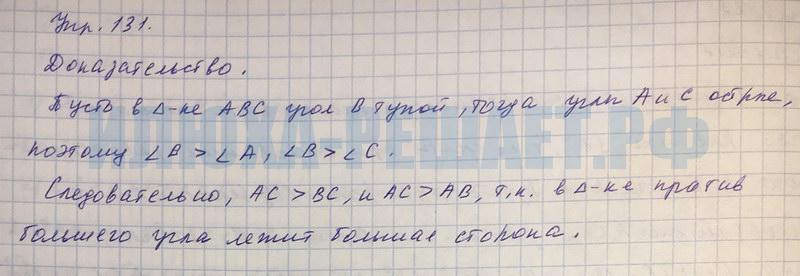 Упр. 131.
Доказательство.
Пусть в Δ-ке ABC угол B тупой, тогда углы A и C острые,
поэтому ∠B > ∠A, ∠B > ∠C.
Следовательно, AC > BC, и AC > AB, т.к. в Δ-ке против
большего угла лежит большая сторона.